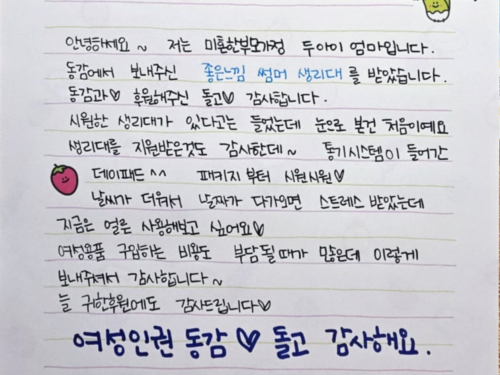 안녕하세요~ 저는 미혼한부모가정 두아이 엄마입니다.
동감에서 보내주신 좋은느낌 썸머 생리대를 받았습니다.
동감과♡ 후원해주신 돌고♡ 감사합니다.
시원한 생리대가 있다고는 들었는데 눈으로 본건 처음이예요
생리대를 지원받은것도 감사한데~ 통기시스템이 들어간
데이패드^^ 패키지부터 시원시원♡
날씨가 더워서 날짜가 다가오면 스트레스 받았는데
지금은 얼른 사용해보고 싶어요♡
여성용품 구입하는 비용도 부담될때가 많은데 이렇게
보내주셔서 감사합니다~
늘 귀한후원에도 감사드립니다♡
여성인권 동감♡돌고 감사해요.